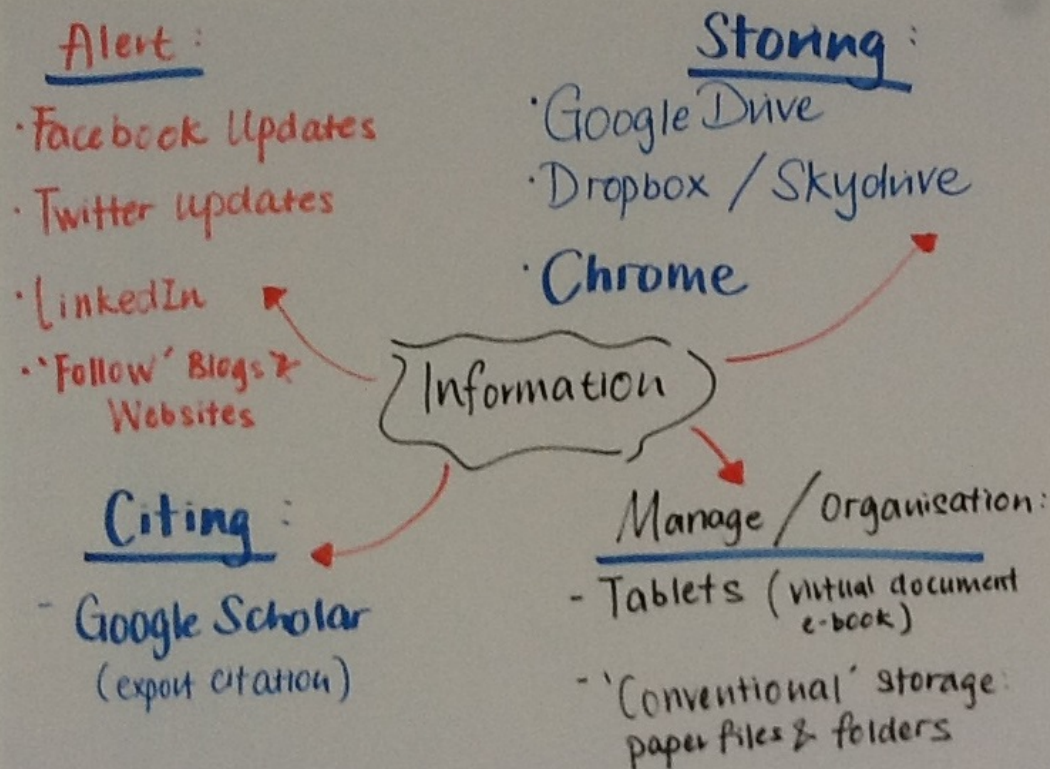 Alert :
· Facebook Updates
· Twitter updates
· LinkedIn
· 'Follow' Blogs &
Websites
Storing :
· Google Drive
· Dropbox / Skydrive
· Chrome
Information
Citing :
- Google Scholar
(export citation)
Manage / Organisation:
- Tablets (virtual document
e-book)
- 'Conventional' storage:
paper files & folders